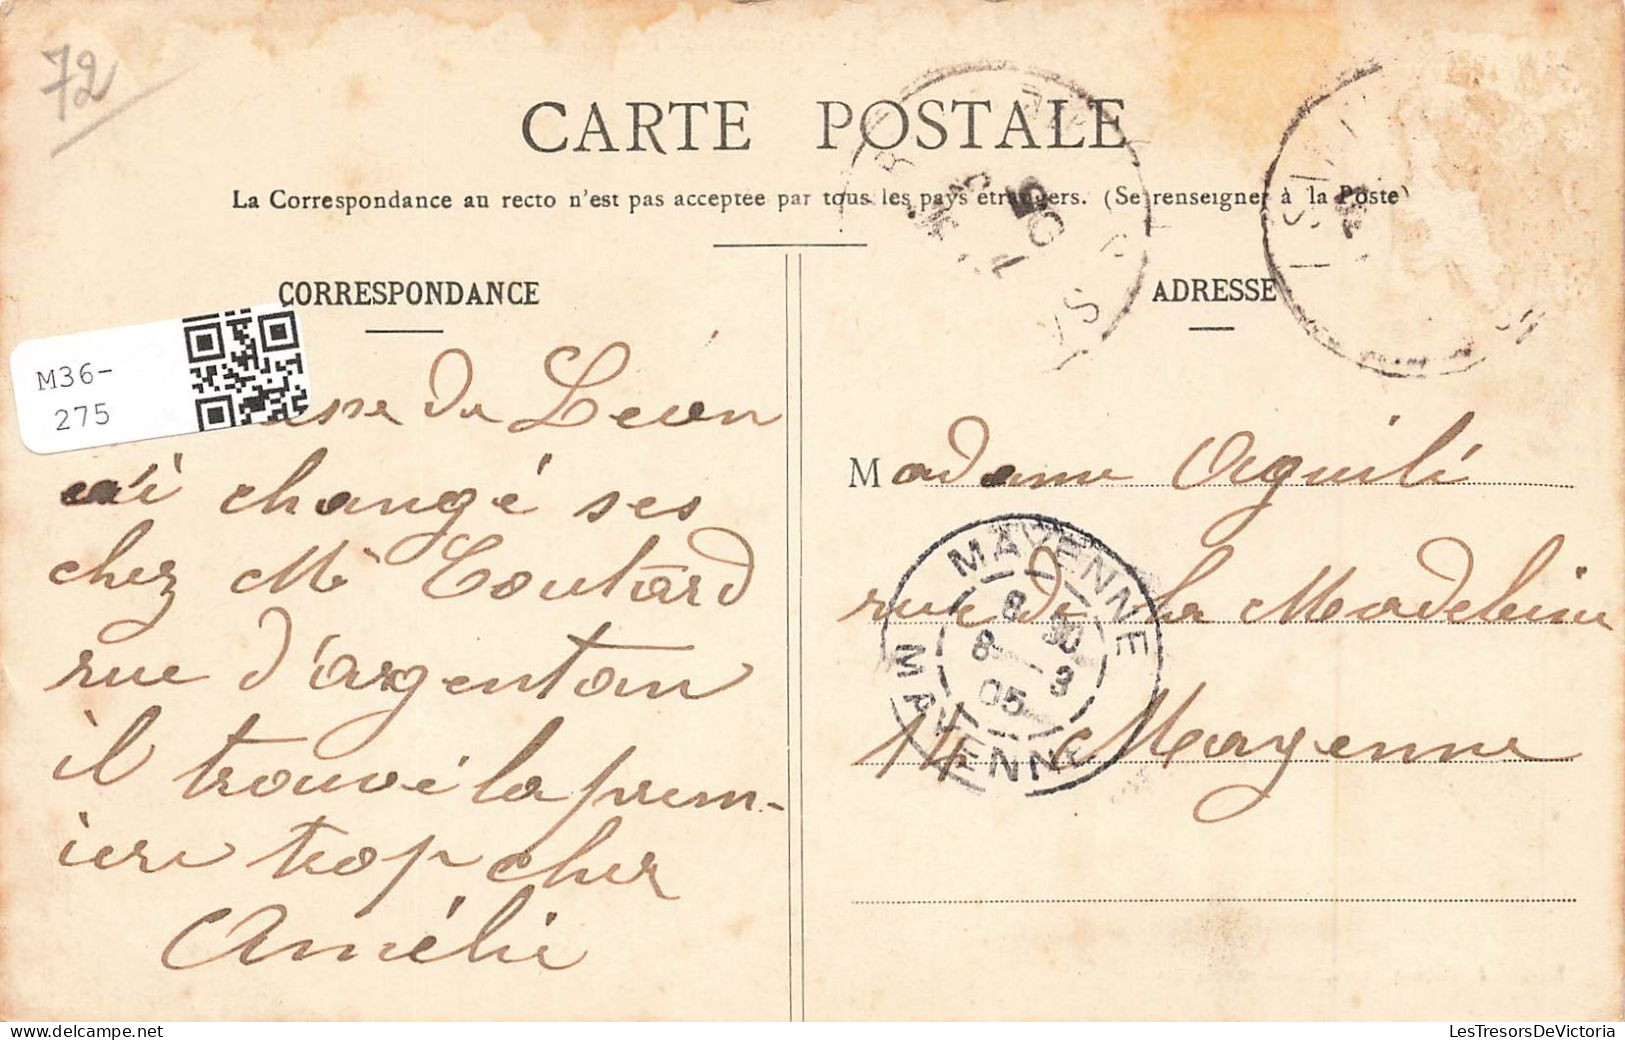 72
CARTE POSTALE
La Correspondance au recto n'est pas acceptée par tous les pays étrangers. (Se renseigner à la Poste)
CORRESPONDANCE
M36-
275
du Leïon
changé ses
chez Me Coutard
rue d'argentan
il trouvé la prem-
iere trop cher
Amélie
ADRESSE
Madame Aguilé
rue de la Madeleine
14 Mayenne
MAYENNE
8 30
8 3
05
MAYENNE
LesTresorsDeVictoria